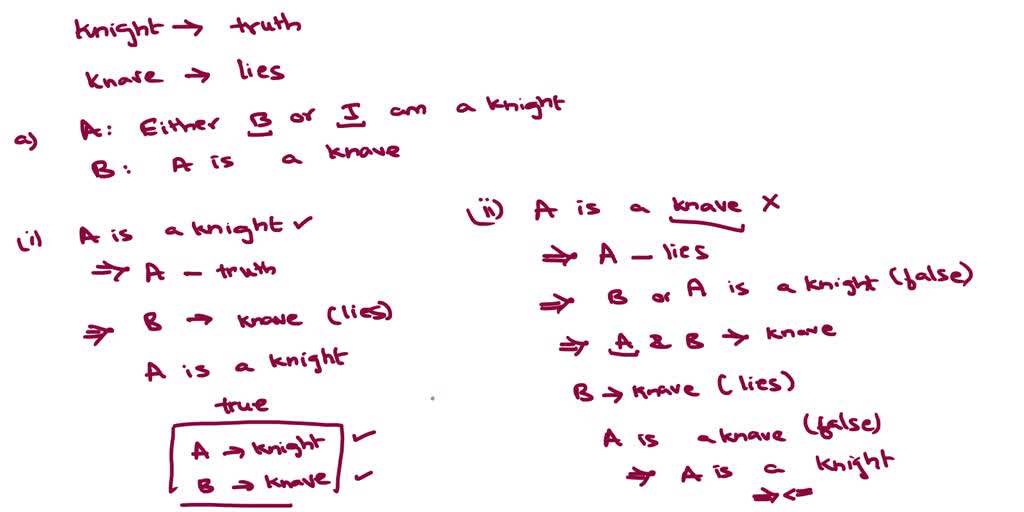 knight → truth
knave → lies
a) A: Either B or I am a knight
B: A is a knave
(i) A is a knight ✓
⇒ A – truth
⇒ B → knave (lies)
A is a knight
true
A → knight ✓
B → knave ✓
(ii) A is a knave ×
⇒ A – lies
⇒ B or A is a knight (false)
⇒ A & B → knave
B → knave (lies)
A is a knave (false)
⇒ A is a knight
⇒⇐